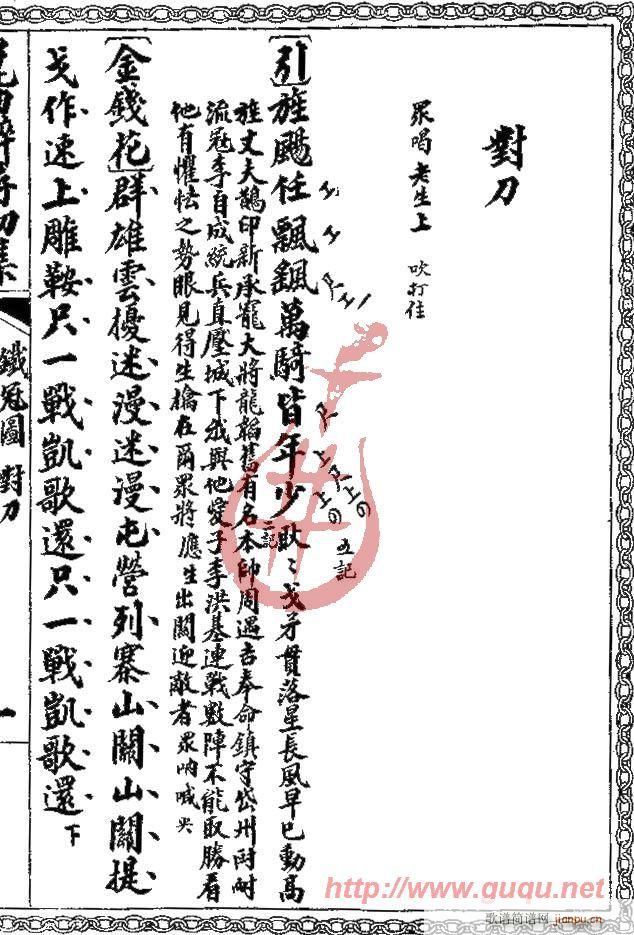 對刀
眾喝老生上 吹打住
〔引〕旌颺任飄颻萬騎皆年少 戈矛貫落星長風早已動高
旌丈夫鵲印新承寵大將龍韜舊有名本帥周遇吉奉命鎮守岱州時耐
流冦李自成統兵直壓城下我與他愛子李洪基連戰數陣不能取勝看
他有懼怯之勢眼見得生擒在爾眾將應生出關迎敵者眾吶喊
〔金錢花〕群雄雲擾迷漫迷漫屯營列寨山關山關提
戈作速上雕鞍只一戰凱歌還只一戰凱歌還下
鐵冠圖 對刀
一
http://www.guqu.net
歌谱简谱网 jianpu.cn